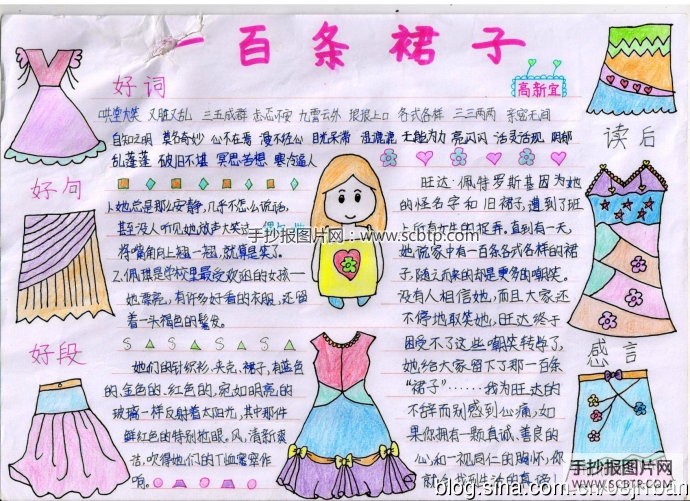 一百条裙子
高新宜
好词
哄堂大笑 又脏又乱 三五成群 忐忑不安 九霄云外 琅琅上口 各式各样 三三两两 亲密无间
自知之明 莫名奇妙 心不在焉 漫不经心 目光呆滞 无能为力 亮闪闪 活灵活现
乱蓬蓬 破旧不堪 冥思苦想 寒冷逼人
好句
1、她总是那么安静,几乎不怎么说话,
甚至没人听见她放声大笑过
得嘴角向上翘一翘,就算是笑了。
2、佩琪是学校里最受欢迎的女孩——
她漂亮,有许多好看的衣服,还留
着一头褐色的鬈发。
好段
她们的针织衫、夹克、裙子,有蓝色
的、金色的、红色的,宛如明亮的
玻璃一样反射着太阳光,其中那件
鲜红色的特别抢眼。风,清新凌
洁,吹得她们的T恤窸窣作
响。
读后
感言
旺达·佩特罗斯基因为她
的怪名字和旧裙子,遭到了班
上所有女生的捉弄。直到有一天,
她说家中有一百条各式各样的裙
子,随之而来的却是更多的嘲笑。
没有人相信她,而且大家还
不停地取笑她,旺达终于
因受不了这些嘲笑转学了,
她给大家留下了那一百条
“裙子”……我为旺达的
不辞而别感到心痛,如
果你拥有一颗真诚、善良的
心,和一视同仁的胸怀,你
就会找到生活的真谛
手抄报图片网:www.scbtp.com
手抄报图片网
WWW.SCBTP.COM